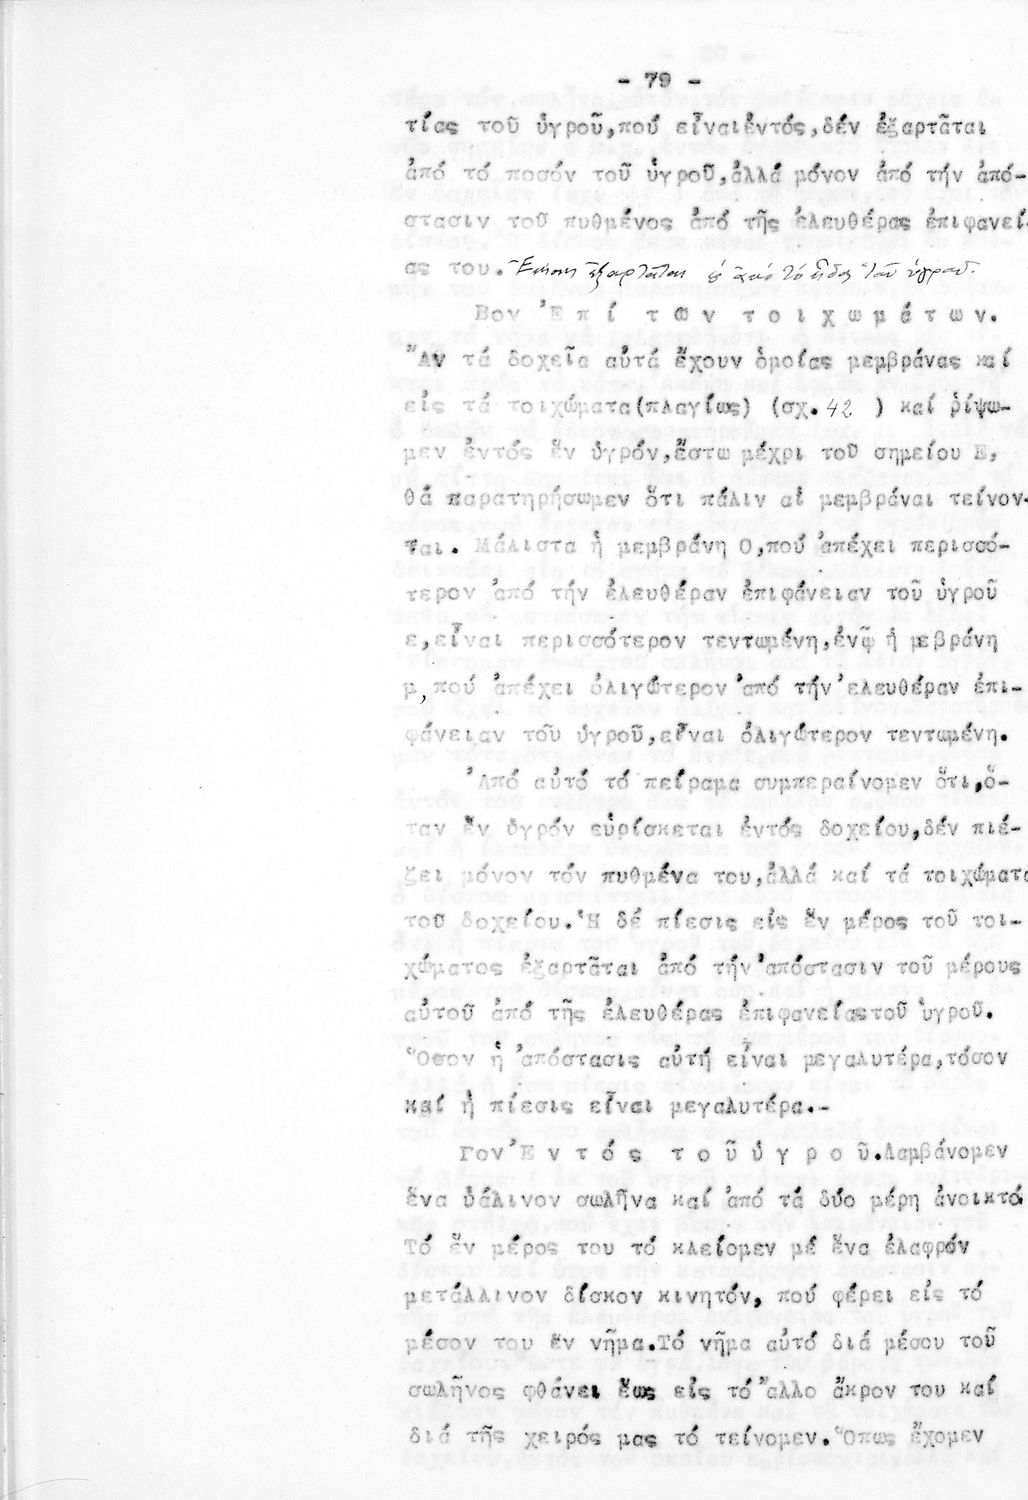 - 79 -
τίας τοῦ ὑγροῦ,πού εἶναιἐντός,δέν ἐξαρτᾶται
ἀπό τό ποσόν τοῦ ὑγροῦ,ἀλλά μόνον ἀπό τήν ἀπό-
στασιν τοῦ πυθμένος ἀπό τῆς ἐλευθέρας ἐπιφανεί-
ας του. Ἐπίσης ἐξαρτᾶται ἀπό τό εἶδος τοῦ ὑγροῦ.
Βον Ἐ π ί τ ῶ ν τ ο ι χ ω μ ά τ ω ν.
Ἄν τά δοχεῖα αὐτά ἔχουν ὁμοίας μεμβράνας καί
εἰς τά τοιχώματα(πλαγίως) (σχ. 42 ) καί ῥίψω-
μεν ἐντός ἕν ὑγρόν,ἔστω μέχρι τοῦ σημείου Ε,
θά παρατηρήσωμεν ὅτι πάλιν αἱ μεμβράναι τείνον-
ται. Μάλιστα ἡ μεμβράνη Ο,πού ἀπέχει περισσό-
τερον ἀπό τήν ἐλευθέραν ἐπιφάνειαν τοῦ ὑγροῦ
ε,εἶναι περισσότερον τεντωμένη,ἐνῷ ἡ μεβράνη
μ,πού ἀπέχει ὀλιγώτερον ἀπό τήν ἐλευθέραν ἐπι-
φάνειαν τοῦ ὑγροῦ,εἶναι ὀλιγώτερον τεντωμένη.
Ἀπό αὐτό τό πείραμα συμπεραίνομεν ὅτι,ὅ-
ταν ἕν ὑγρόν εὑρίσκεται ἐντός δοχείου,δέν πιέ-
ζει μόνον τόν πυθμένα του,ἀλλά καί τά τοιχώματα
τοῦ δοχείου.Ἡ δέ πίεσις εἰς ἕν μέρος τοῦ τοι-
χώματος ἐξαρτᾶται ἀπό τήν ἀπόστασιν τοῦ μέρους
αὐτοῦ ἀπό τῆς ἐλευθέρας ἐπιφανείαςτοῦ ὑγροῦ.
Ὅσον ἡ ἀπόστασις αὐτή εἶναι μεγαλυτέρα,τόσον
καί ἡ πίεσις εἶναι μεγαλυτέρα.-
Γον Ἐ ν τ ό ς τ ο ῦ ὑ γ ρ ο ῦ.Λαμβάνομεν
ἕνα ὑάλινον σωλῆνα καί ἀπό τά δύο μέρη ἀνοικτό.
Τό ἕν μέρος του τό κλείομεν μέ ἕνα ἐλαφρόν
μετάλλινον δίσκον κινητόν, πού φέρει εἰς τό
μέσον του ἕν νῆμα.Τό νῆμα αὐτό διά μέσου τοῦ
σωλῆνος φθάνει ἕως εἰς τό ἄλλο ἄκρον του καί
διά τῆς χειρός μας τό τείνομεν.Ὅπως ἔχομεν